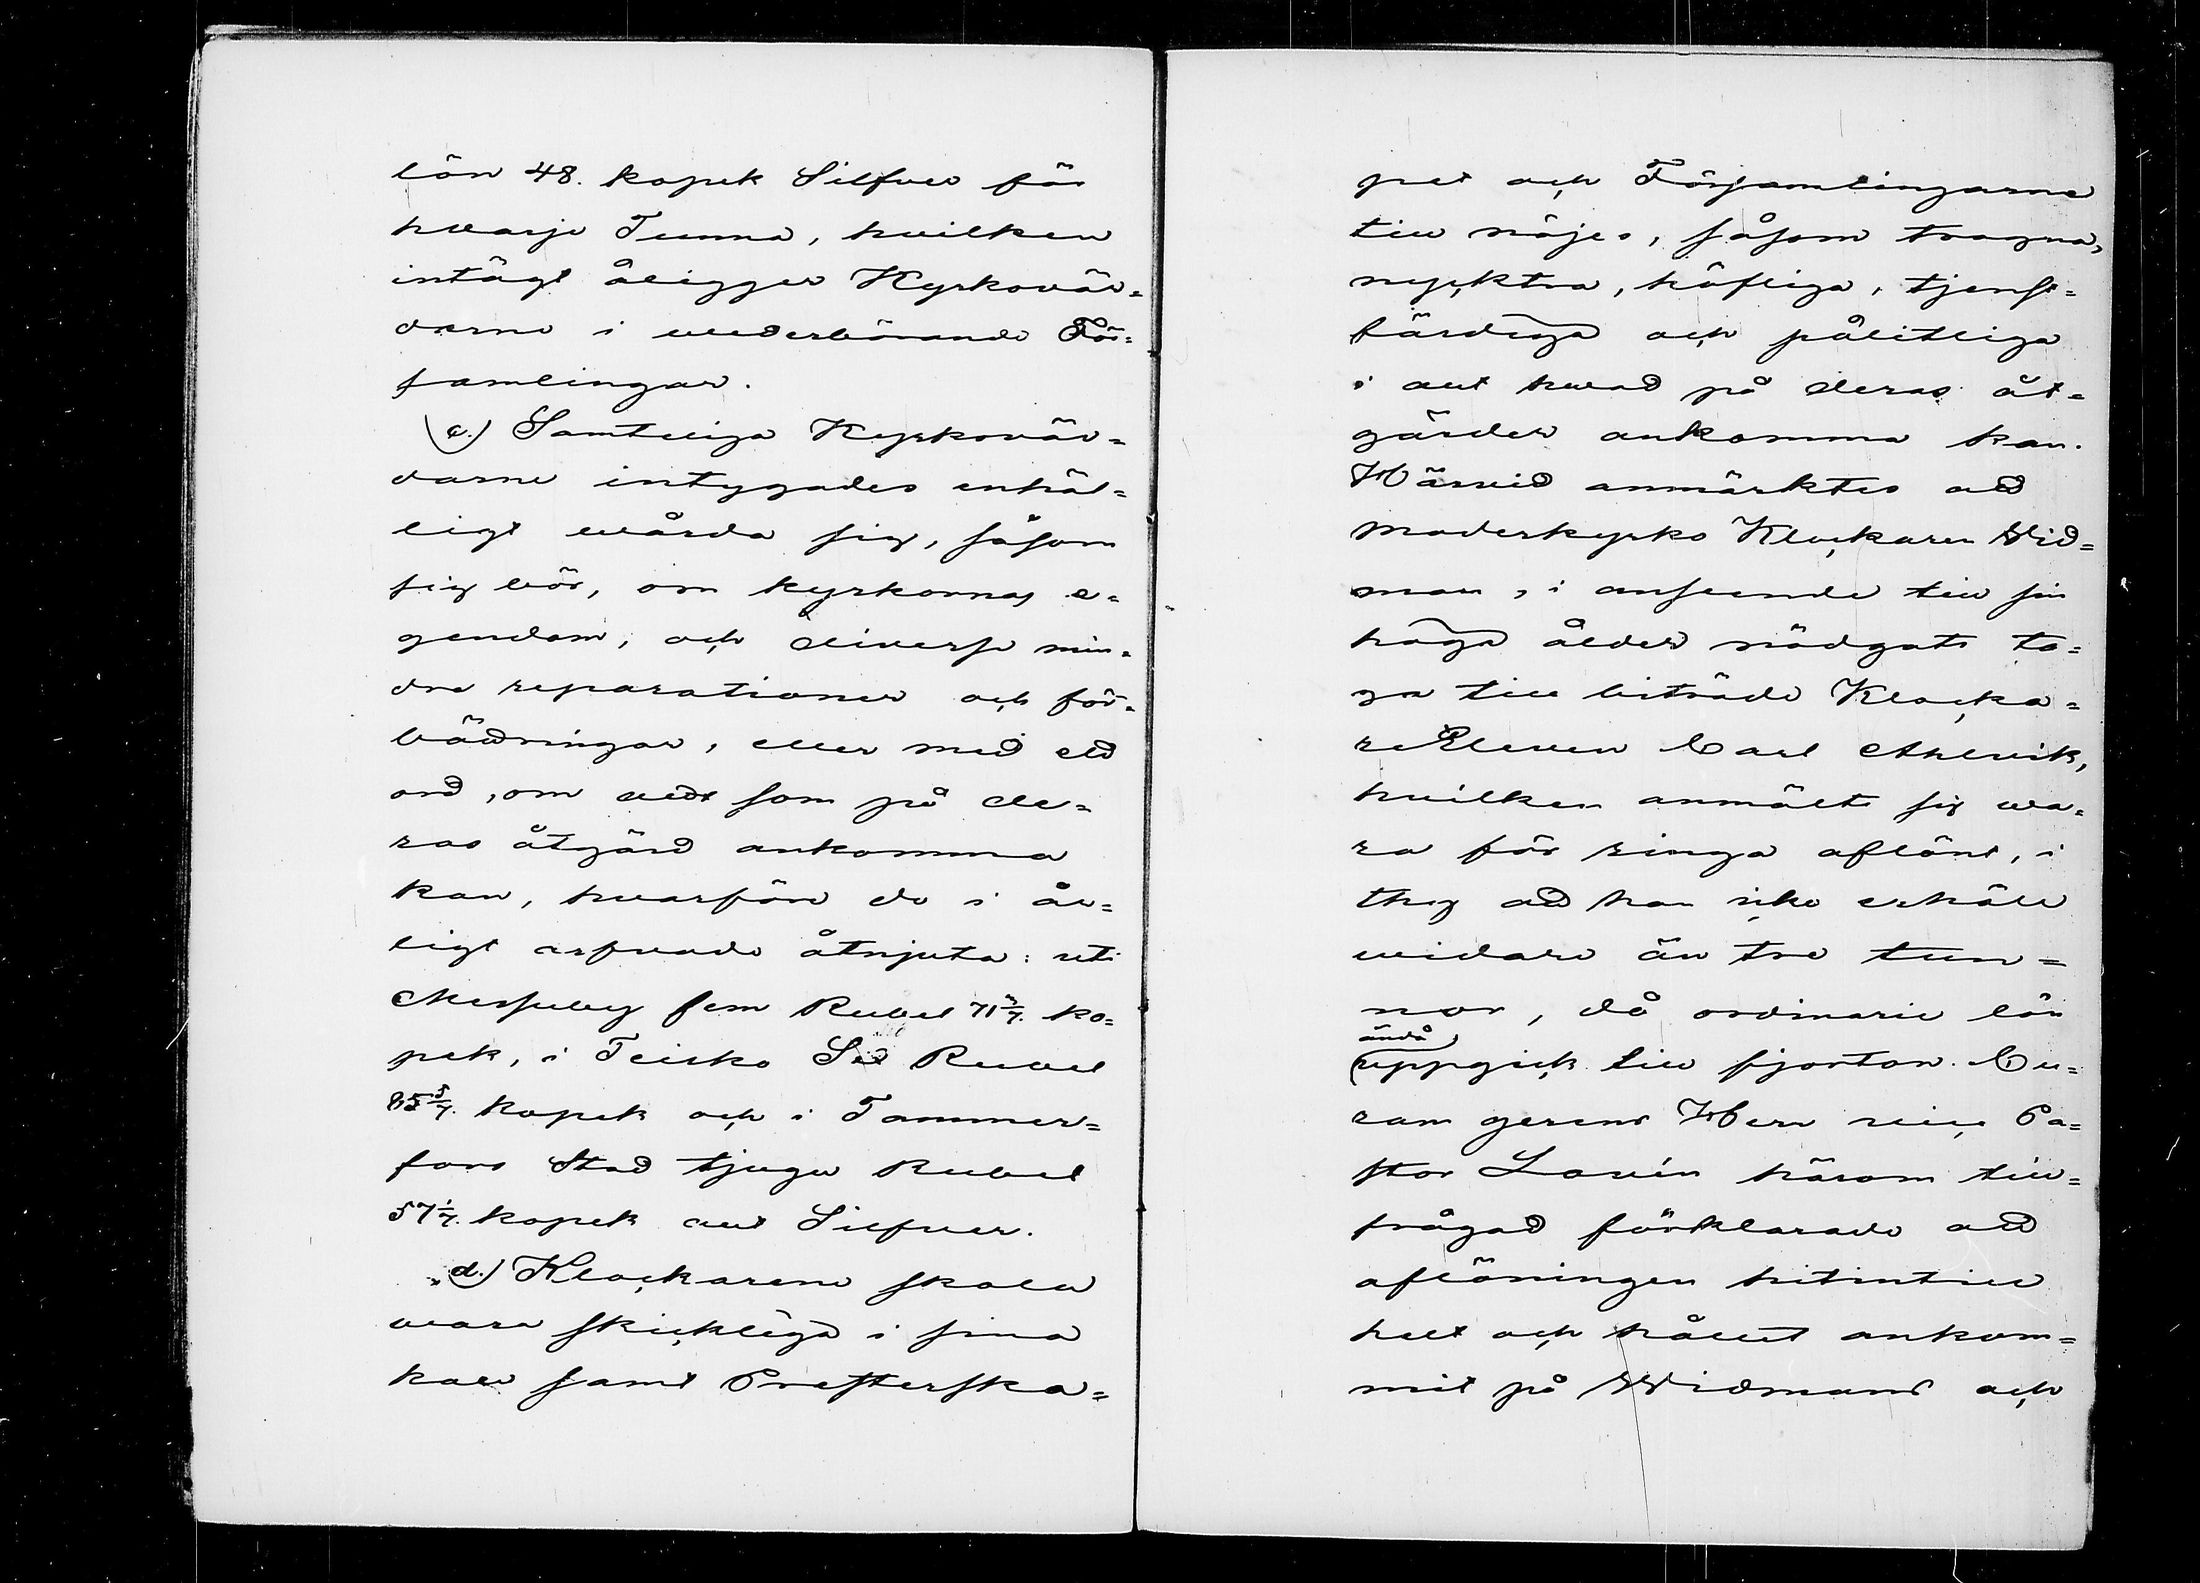 lön 48. kopek Silfver för
hvarje Tunna, hvilken
intägt åligger Kyrkovär=
darne i vederbörande För=
samlingar.
c.) Samtelliga Kyrkovär=
darne intygades enhäl=
ligt vårda sig, såsom
sig bör, om kyrkornas e=
gendom, och diverse min=
dre reparationer och för=
bättringar, eller med ett
ord, om allt som på de=
ras åtgärd ankomma
kan, hvarföre de i år=
ligt arfvode åtnjuta: uti
Messuby fem Rubel 71 3/7. ko=
pek, i Teisko Två Rubel
85 5/7. kopek och i Tammer=
fors Stad tjugu Rubel
57 1/7. kopek allt Silfver.
d.) Klockarene skola
vara skickliga i sina
kall samt Presterska=
pet och Församlingarne
till nöjes, såsom trogna,
nycktra, höfliga, tjenst=
färdiga och pålitliga
i allt hvad på deras åt=
gärder ankomma kan.
Härvid anmärktes att
moderkyrko Klockaren Wid=
man, i anseende till sin
höga ålder nödgats ta=
ga till biträde Klocka=
re Eleven Carl Ahlvik,
hvilken anmält sig va=
ra för ringa aflönt, i
thy att han icke erhåll
vidare än tre tun=
nor, då ordinarie lön
ändå
uppgick till fjorton. Cu=
ram gerens Herr vice Pa=
stor Lovén härom till=
frågad förklarade att
aflöningen hitintill
helt och hållet ankom=
mit på Widmans och